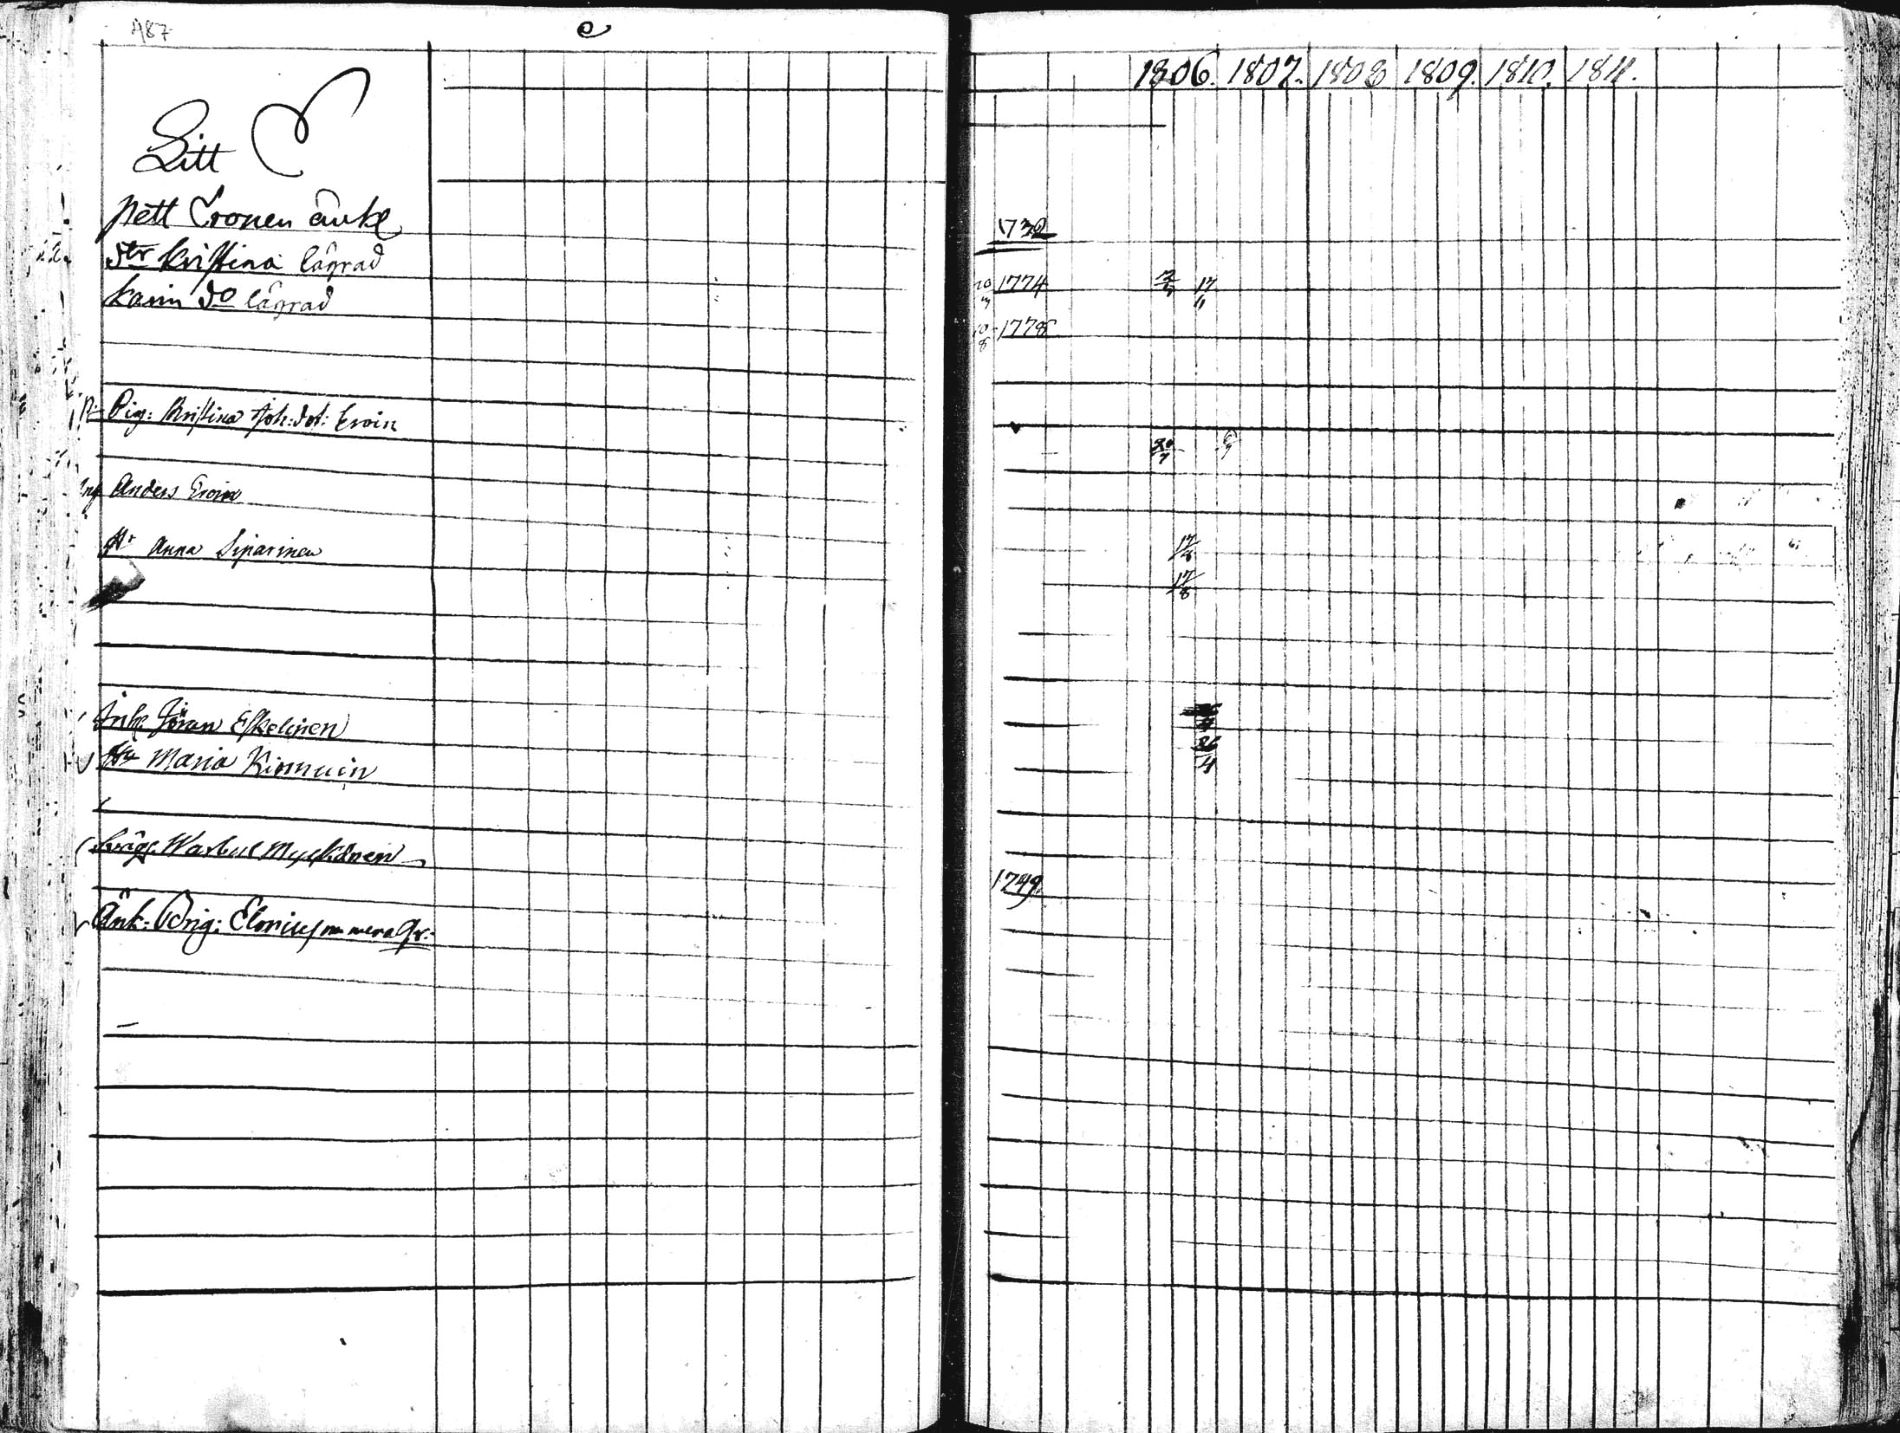 487
e
Litt E
pett Cronen änke
dtr kristina lägrad
karin do lägrad
Pig: Kristina Joh:dot: Eroin
Anders Eroin
H: Anna Siparinen
Inh: Jöran Eskelinen
Hu Maria Kinnuin
Warbul Myckänen
Änk: Brig:
1806. 1807. 1808 1809. 1810. 1811.
1732
20/3 1774 2/3 17/11
10/8 1778
20/7
17/8
17/8
26/4
26/4
1749.